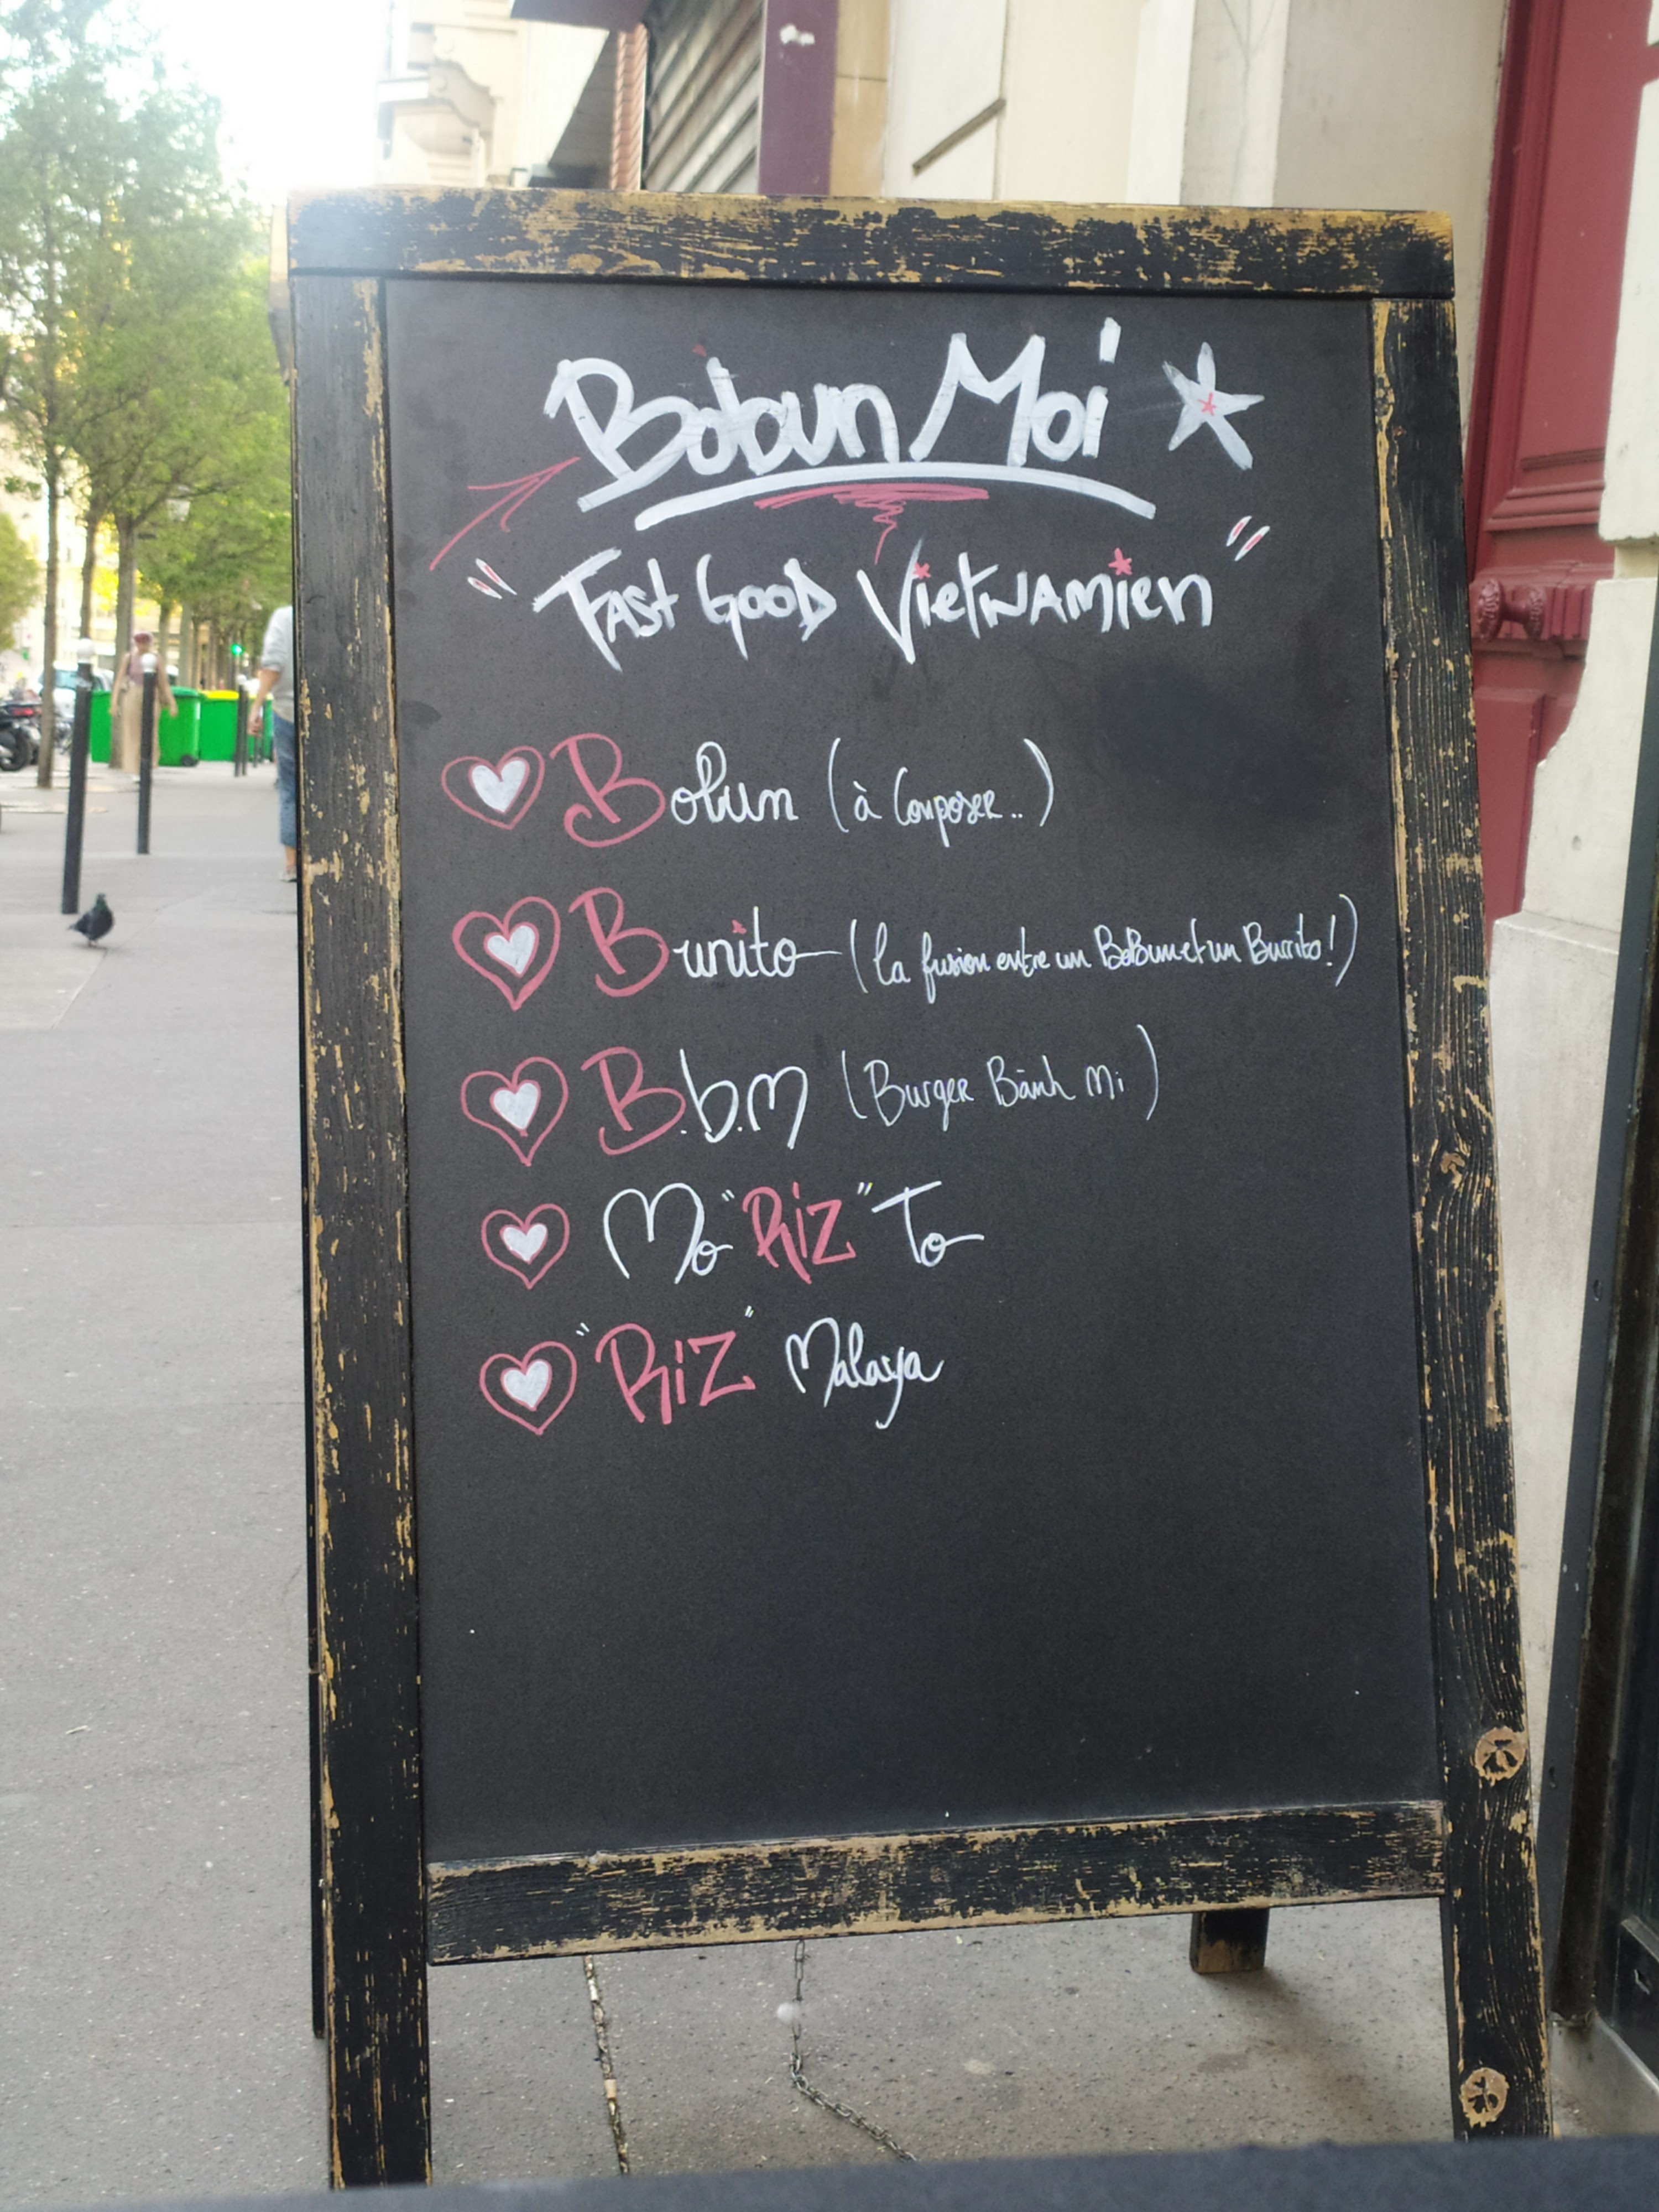 Bobun Moi
"Fast Good Vietnamien"
Bobun (à Composer..)
Bunito (la fusion entre un BoBun et un Burrito!)
B.b.m (Burger Bành Mi)
Mo "Riz" To
"Riz" Malaya